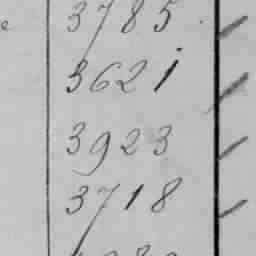 3785
3621
3923
3718